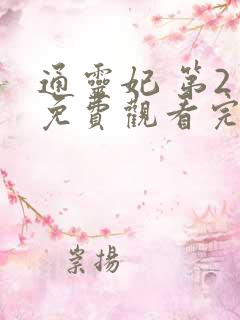 通靈妃 第2
免費觀看完
崇揚